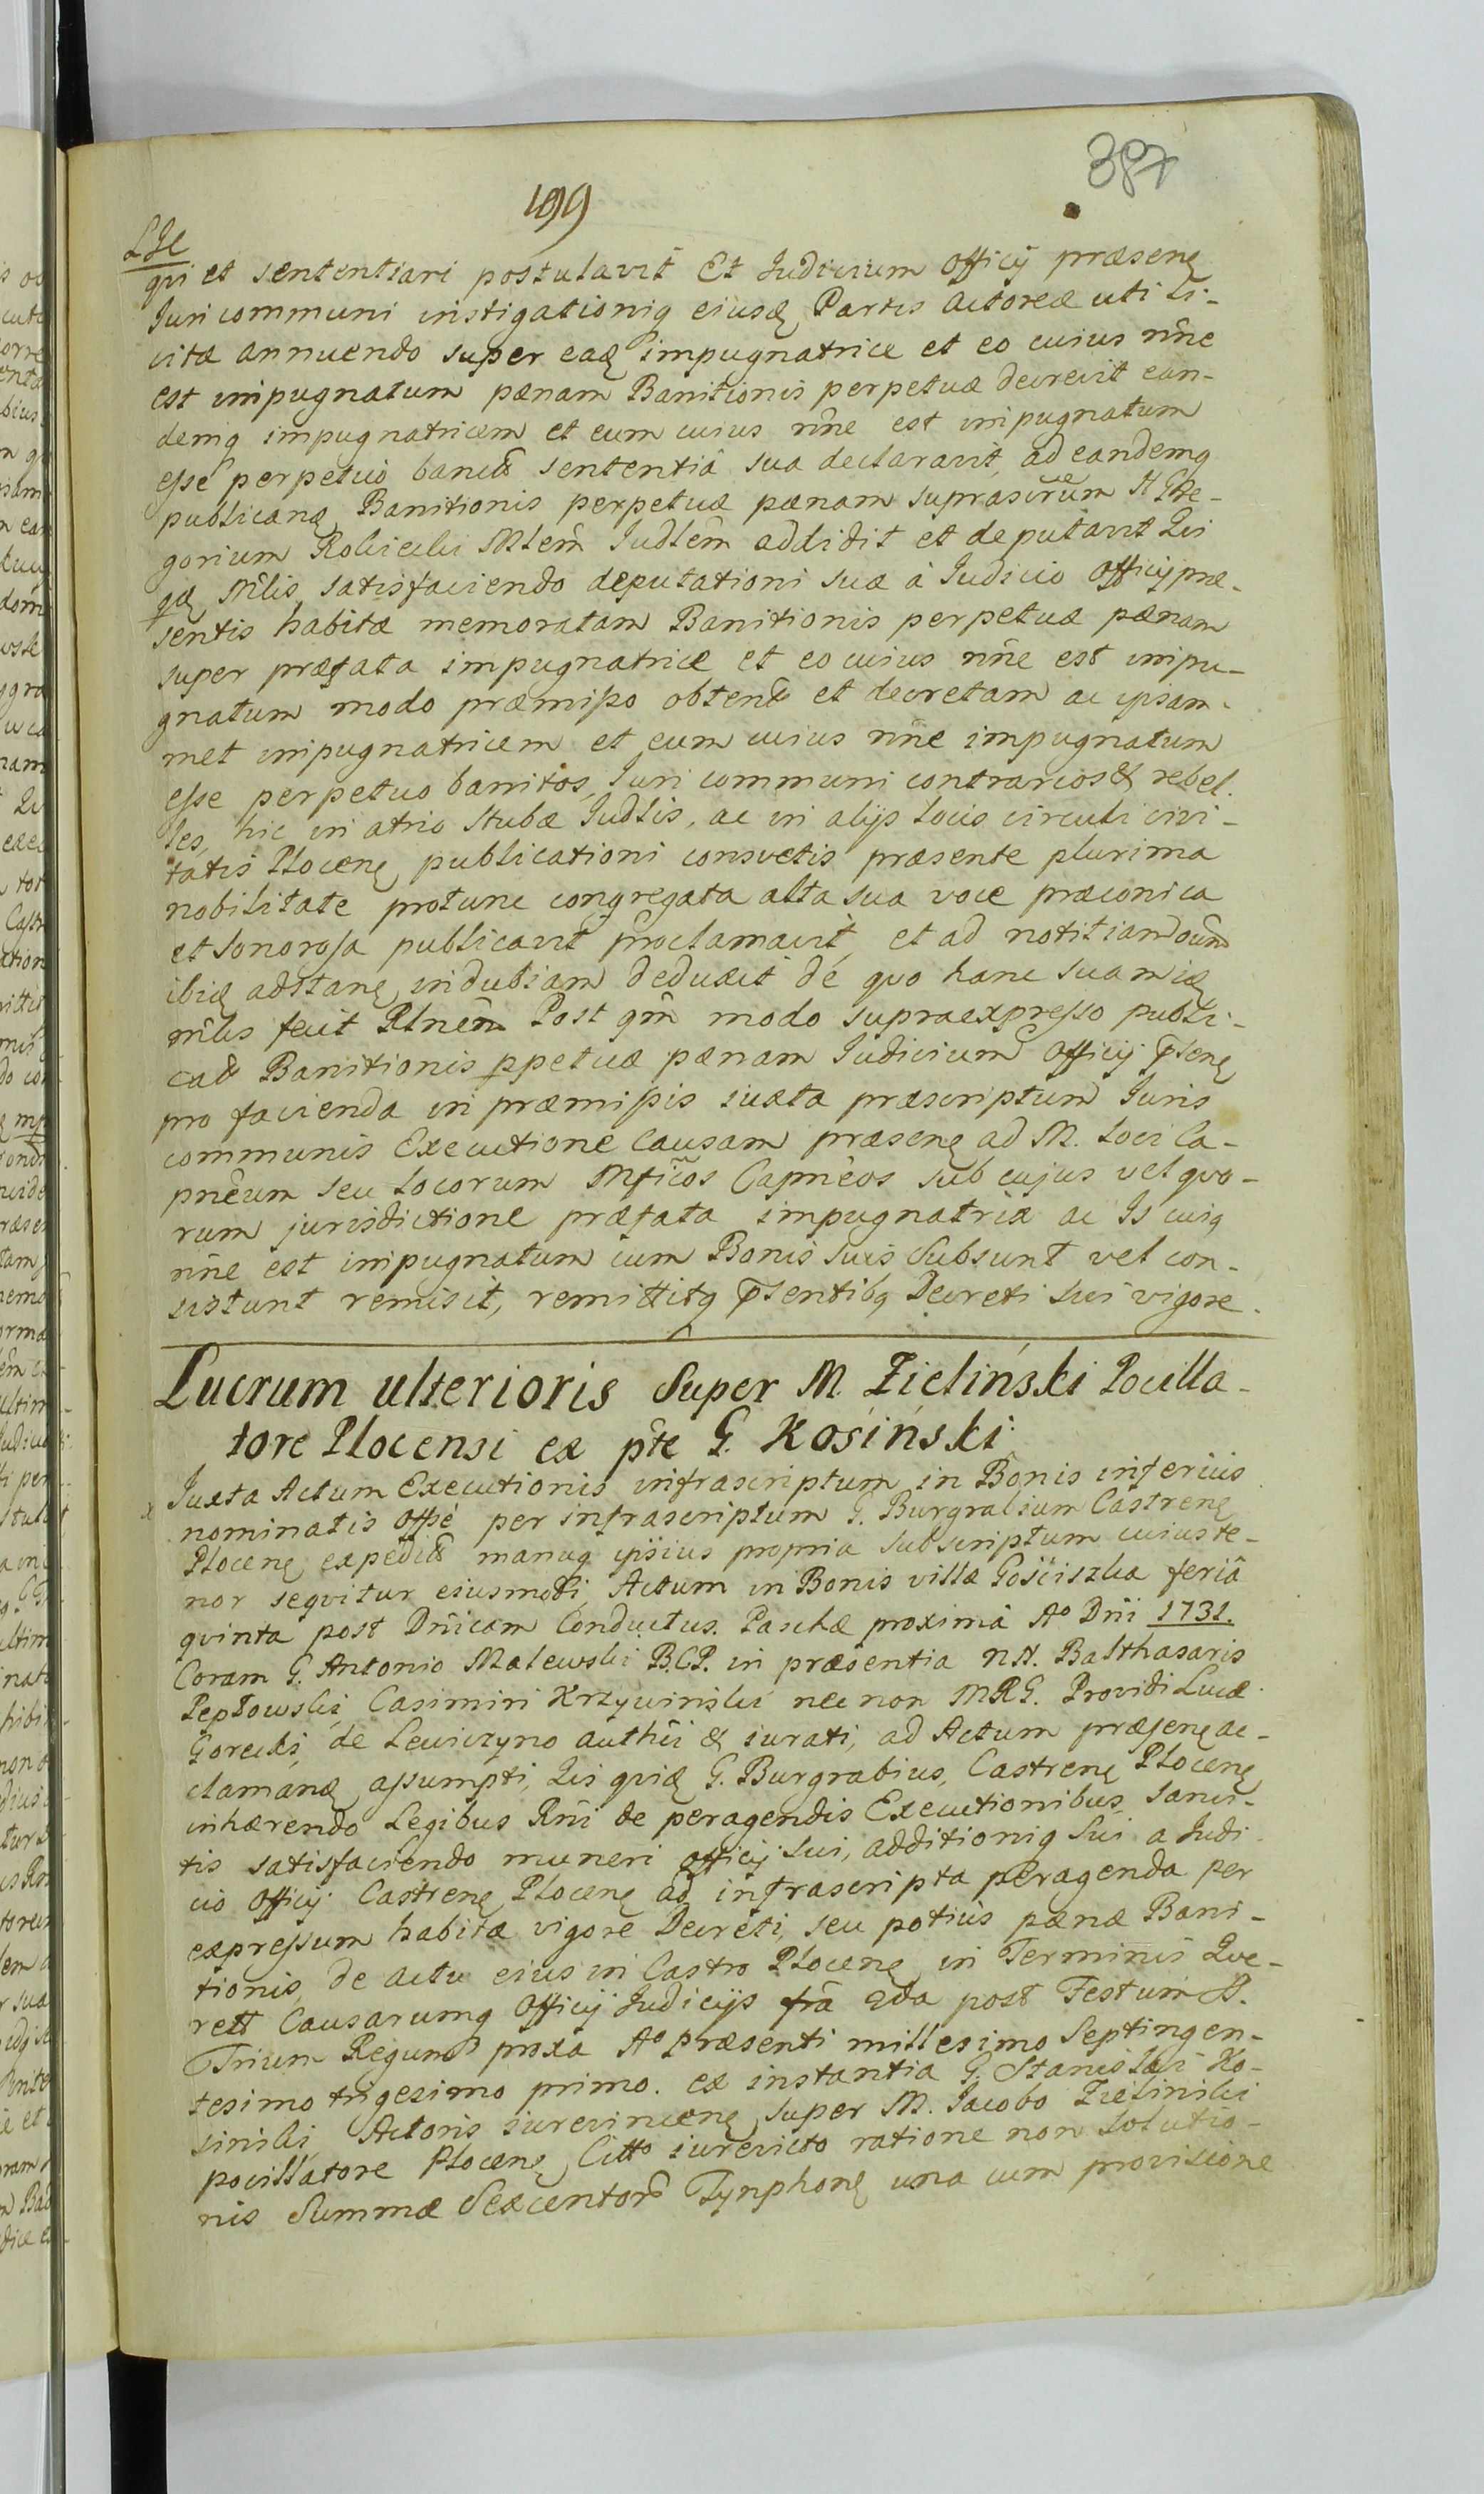 387
199
qvi et sententiari postulavit Et Judicium Officij præsenę
Juri communi instigationiq eiusdę Partis Actoreæ uti li-
citæ annuendo super eadę impugnatrice et eo cuius nn̄e
est impugnatum pænam Banitionis perpetuæ decrevit ean-
demq impugnatricem et eum cuius nn̄e est impugnatum
esse perpetuo banitt sententiâ sua declaravit, ad eandemq
publicandę Banitionis perpetuæ pænam suprascr̄tum N Gre-
gorium Rokicki Mlem̄ Judlem̄ addidit et deputavit Qui
qdę Mlis satisfaciendo deputationi suæ à Judicio Officij præ-
sentis habitæ memoratam Banitionis perpetuæ pænam
super præfata impugnatrice et eo cuius nn̄e est impu-
gnatum modo præmisso obtentt et decretam ac ipsam-
met impugnatricem et eum cuius nn̄e impugnatum
esse perpetuo banitos, Juri communi contrarios & rebel-
les, hic in atrio Stubæ Judlis, ac in alijs locis circuli civi-
tatis Plocenę publicationi consvetis præsente plurima
nobilitate protunc congregata alta sua voce præconica
et sonorosa publicavit proclamavit, et ad notitiam oum̄
ibidę adstanę indubiam deduxit de qvo hanc suam idę
mlis fecit Rlnem̄ Post qm̄ modo supraexpresso publi-
catt Banitionis ppetuæ pænam Judicium Officij pſenę
pro facienda in præmissis iuxta præscriptum Juris
communis Executione Causam præsenę ad M. Loci Ca-
pneum seu Locorum Mficos Capneos sub cujus vel qvo-
rum jurisdictione præfata impugnatrix ac Is cuiq
nn̄e est impugnatum cum Bonis suis subsunt vel con-
sistunt remisit, remittitq pſentibq Decreti sui vigore.
Lucrum ulterioris Super M. Zieliński Pocilla-
tore Plocensi ex pte G. Kosiński
Juxta Actum Executionis infrascriptum in Bonis inferius
nominatis Offse per infrascriptum G. Burgrabium Castrenę
Plocenę expeditt manuq ipsius propria subscriptum cuius te-
nor seqvitur eiusmodi, Actum in Bonis villæ Gościszka feriâ
qvinta post Dnicam Conductus Paschæ proximâ Ao Dni 1731.
Coram G. Antonio Malewski B.C.P. in præsentia NN. Balthasaris
Pepłowski, Casimiri Krzywiński nec non MRG. Providi Lucæ
Gorecki, de Lewiczyno authci & iurati, ad Actum præsenę ac-
clamandę assumpti, Qui qvidę G. Burgrabius, Castrenę Plocenę
inhærendo Legibus Rni de peragendis Executionibus sanci-
tis satisfaciendo muneri officij sui, additioniq sui a Judi-
cio Officij Castrenę Plocenę ad infrascripta peragenda per
expressum habitæ vigore Decreti, seu potius pænæ Bani-
tionis, de actu eius in Castro Plocenę in Terminis Qve-
rell Causarumq Officij Judicijs fr̄a 2da post Festum S.
Trium Regum proxa Ao præsenti millesimo Septingen-
tesimo trigesimo primo. ex instantia G. Stanislai Ko-
siński, Actoris iurevincenę super M. Jacobo Zieliński
pocillatore Plocenę, Citto iurevicto ratione non solutio-
nis Summæ Sexcentor Tynphonę una cum provisione